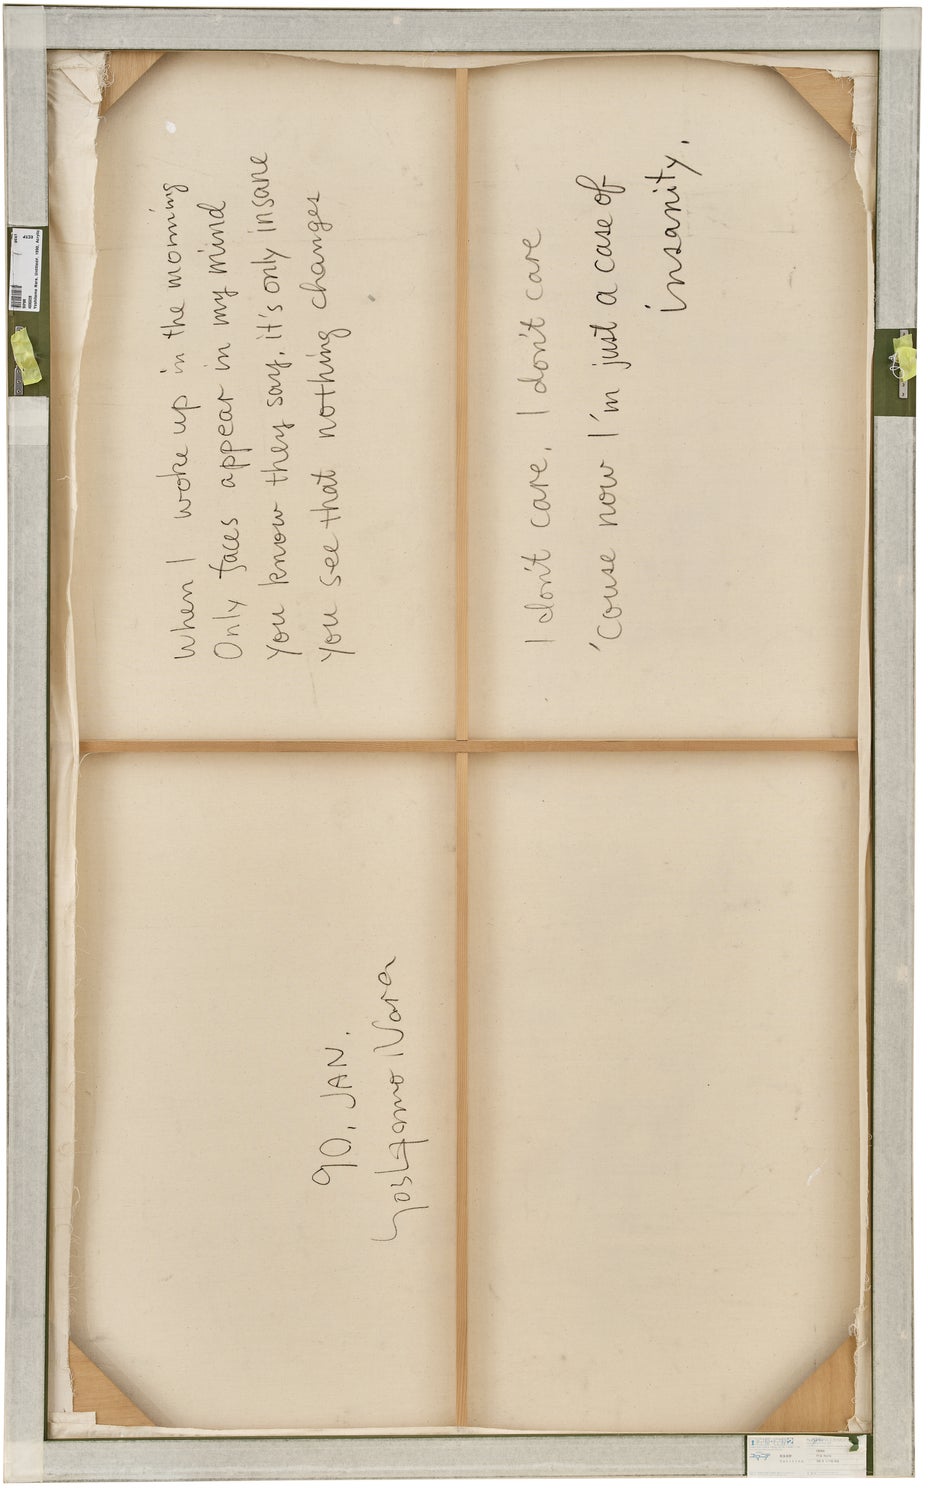 When I woke up in the morning
Only faces appear in my mind
You know they say, it's only insane
You see that nothing changes
I don't care, I don't care
'couse now I'm just a case of
insanity.
90. JAN.
Yoshitomo Nara